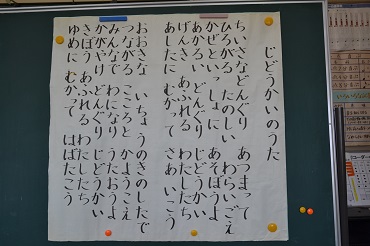 じどうかいのうた
ちいさなどんぐり あつまって
ひろがる たのしい わらいごえ
かぜと いっしょに あそぼうよ
あかるい どんぐり じどうかい
げんき あふれる わたしたち
あしたに むかって さあ いこう
おおきな いちょうのきのしたで
つながる こころと かようこえ
みんなで わになり うたおうよ
かがやけ どんぐり じどうかい
きぼう あふれる わたしたち
ゆめに むかって はばたこう